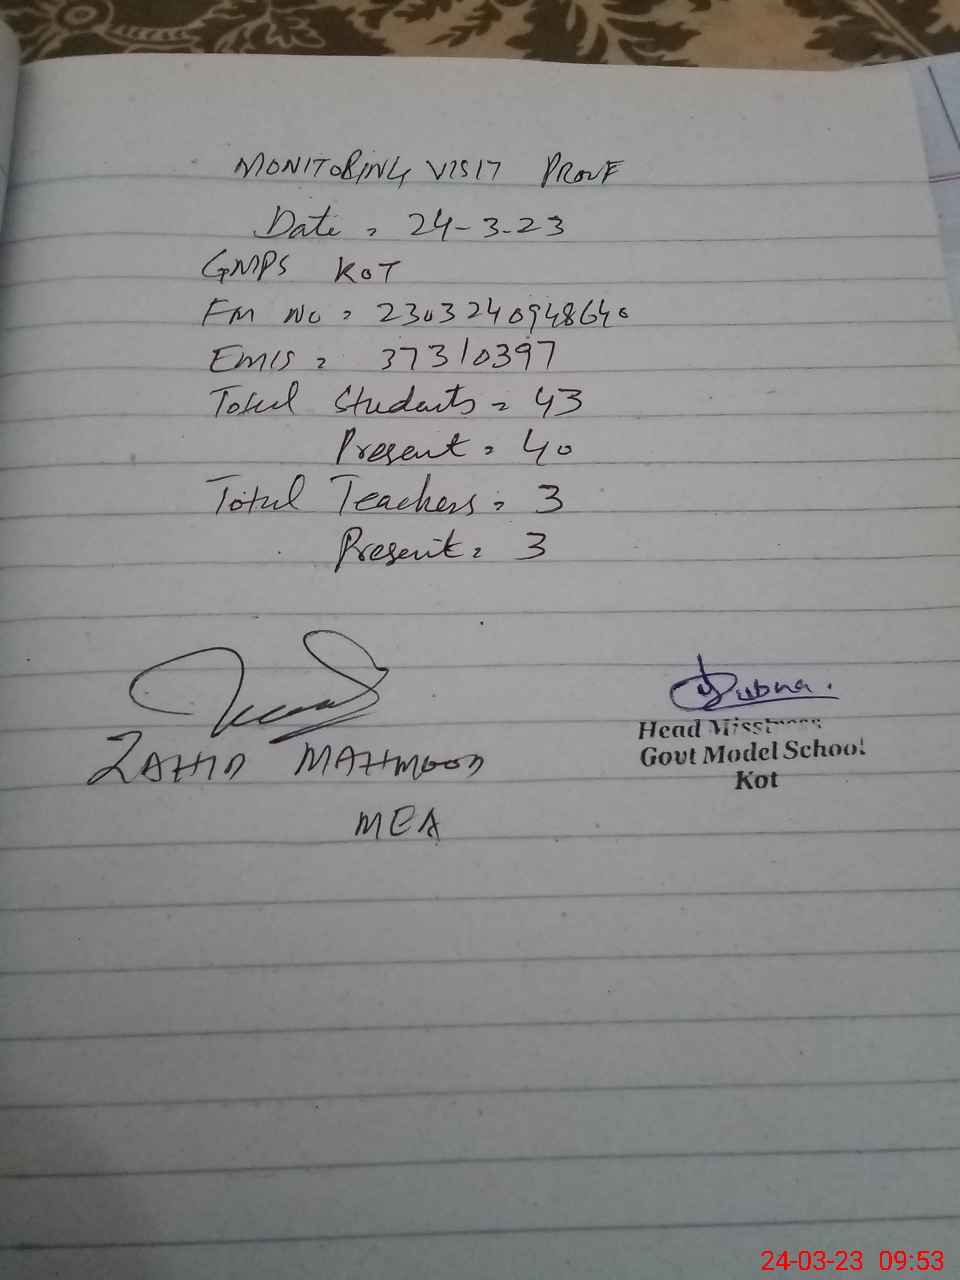 MONITORING VISIT PROVE
Date = 24-3-23
GMPS KOT
FM No = 2303240948640
EMIS = 37310397
Total Students = 43
Present = 40
Total Teachers = 3
Present = 3
ZAHID MAHMOOD
MEA
Lubna.
Head Misstress
Govt Model School
Kot
24-03-23 09:53